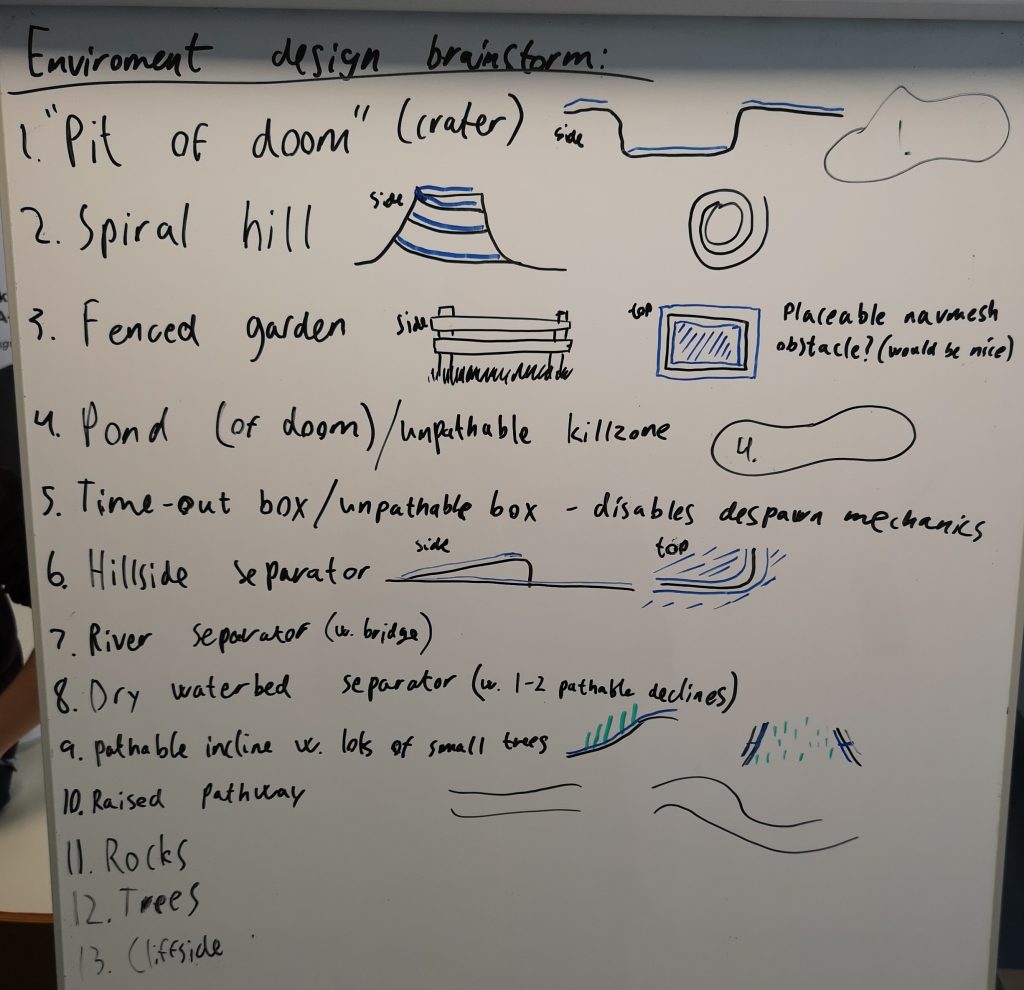 Enviroment design brainstorm:
1. "Pit of doom" (crater) side 1.
2. Spiral hill side
3. Fenced garden side top Placeable navmesh
obstacle? (would be nice)
4. Pond (of doom)/unpathable killzone 4.
5. Time-out box/unpathable box - disables despawn mechanics
6. Hillside separator side top
7. River separator (w. bridge)
8. Dry waterbed separator (w. 1-2 pathable declines)
9. pathable incline w. lots of small trees
10. Raised pathway
11. Rocks
12. Trees
13. Cliffside